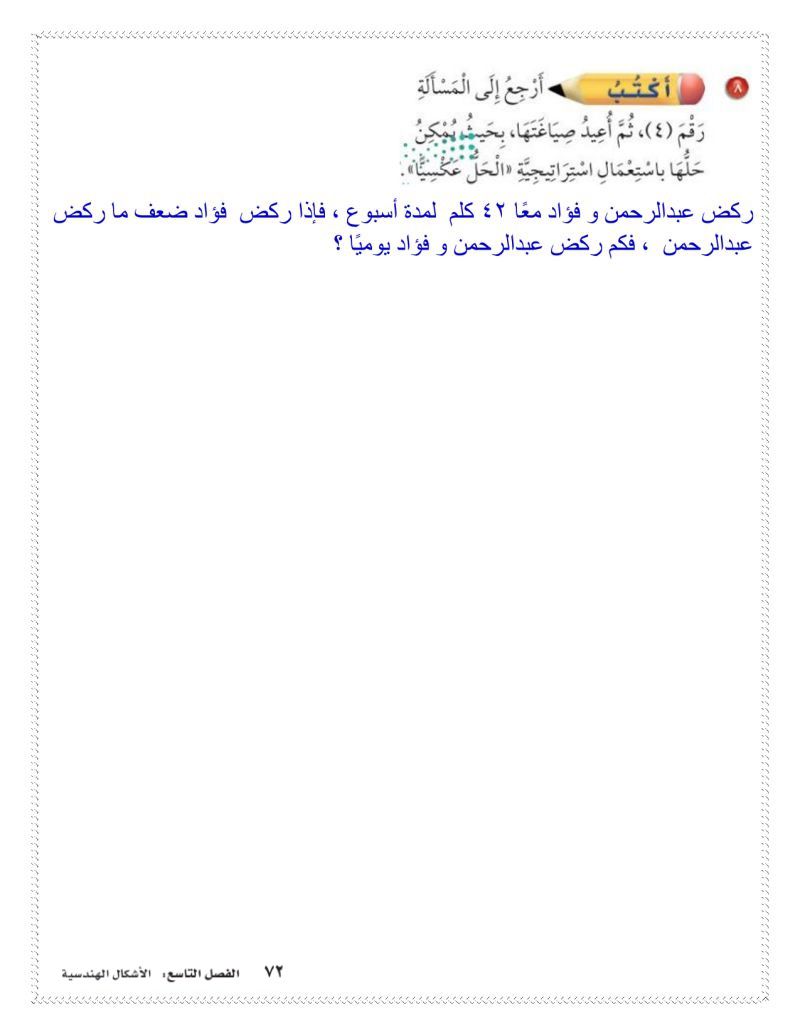 ٨ أَكْتُبُ أَرْجِعُ إِلَى الْمَسْأَلَةِ
رَقْمَ (٤)، ثُمَّ أُعِيدُ صِيَاغَتَهَا، بِحَيثُ يُمْكِنُ
حَلُّهَا باسْتِعْمَالِ اسْتِرَاتِيجِيَّةِ «الْحَلُّ عَكْسِيًّا».
ركض عبدالرحمن و فؤاد معًا ٤٢ كلم لمدة أسبوع ، فإذا ركض فؤاد ضعف ما ركض
عبدالرحمن ، فكم ركض عبدالرحمن و فؤاد يوميًا ؟
٧٢ الفصل التاسع: الأشكال الهندسية